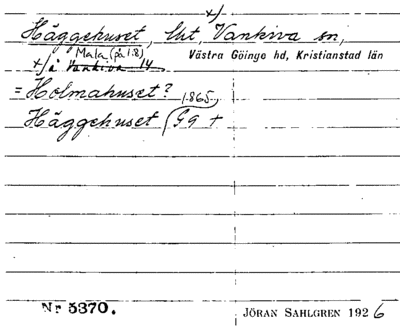 x/
Häggehuset, lht, Vankiva sn,
Mala (på 1:8)
x/ å Vankiva 14
Västra Göinge hd, Kristianstad län
= Holmahuset?
1865
Häggehuset (Gg +
Nr 5370.
JÖRAN SAHLGREN 1926